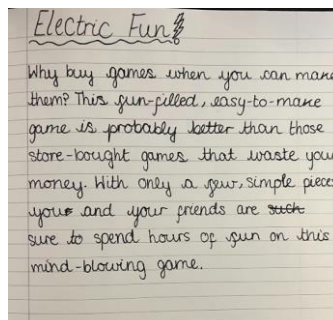 Electric Fun!
Why buy games when you can make
them? This fun-filled, easy-to-make
game is probably better than those
store-bought games that waste you
money. With only a few, simple pieces
you and your friends are such
sure to spend hours of fun on this
mind-blowing game.